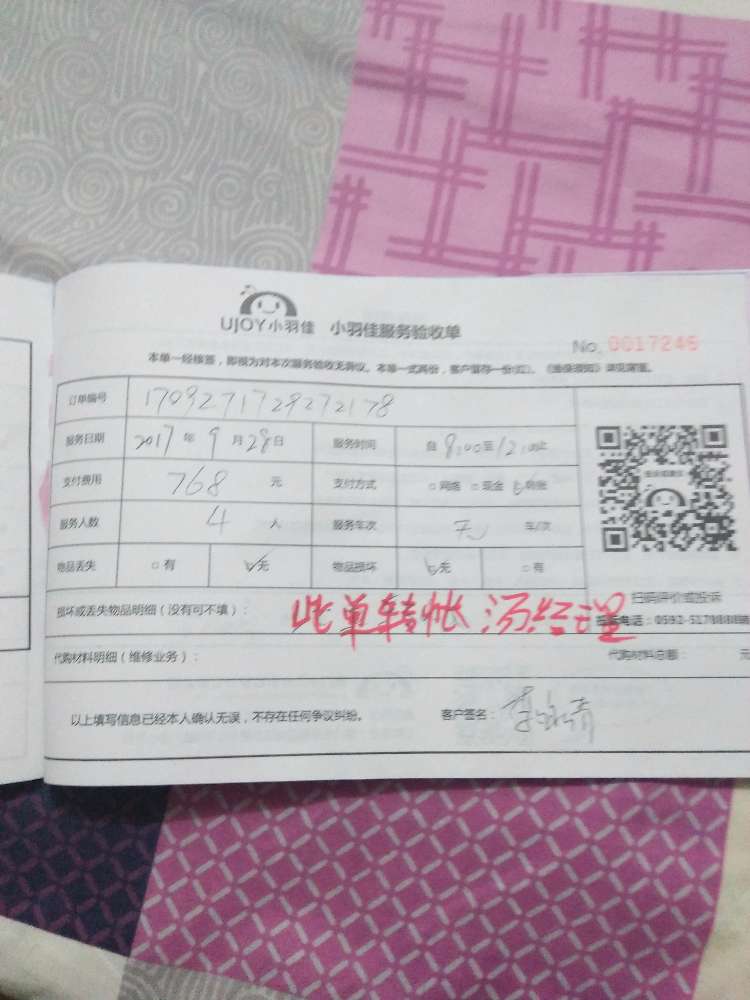 UJOY小羽佳 小羽佳服务验收单
No. 0017246
本单一经核签，即视为对本次服务验收无异议。本单一式两份，客户留存一份(红)。《 》详见背面。
订单编号 1709271729272178
服务日期 2017 年 9 月 28 日 服务时间 自 8:00 至 12:00 止
支付费用 768 元 支付方式 □网络 □现金 转账
服务人数 4 人 服务车次 车/次
物品丢失 □有 ☑无 物品损坏 ☑无 □有
扫码评价或投诉
损坏或丢失物品明细（没有可不填）： 此单转帐 汤经理
电话：0592-5178888
代购材料明细（维修业务）： 代购材料总额： 元
以上填写信息已经本人确认无误，不存在任何争议纠纷。 客户签名：